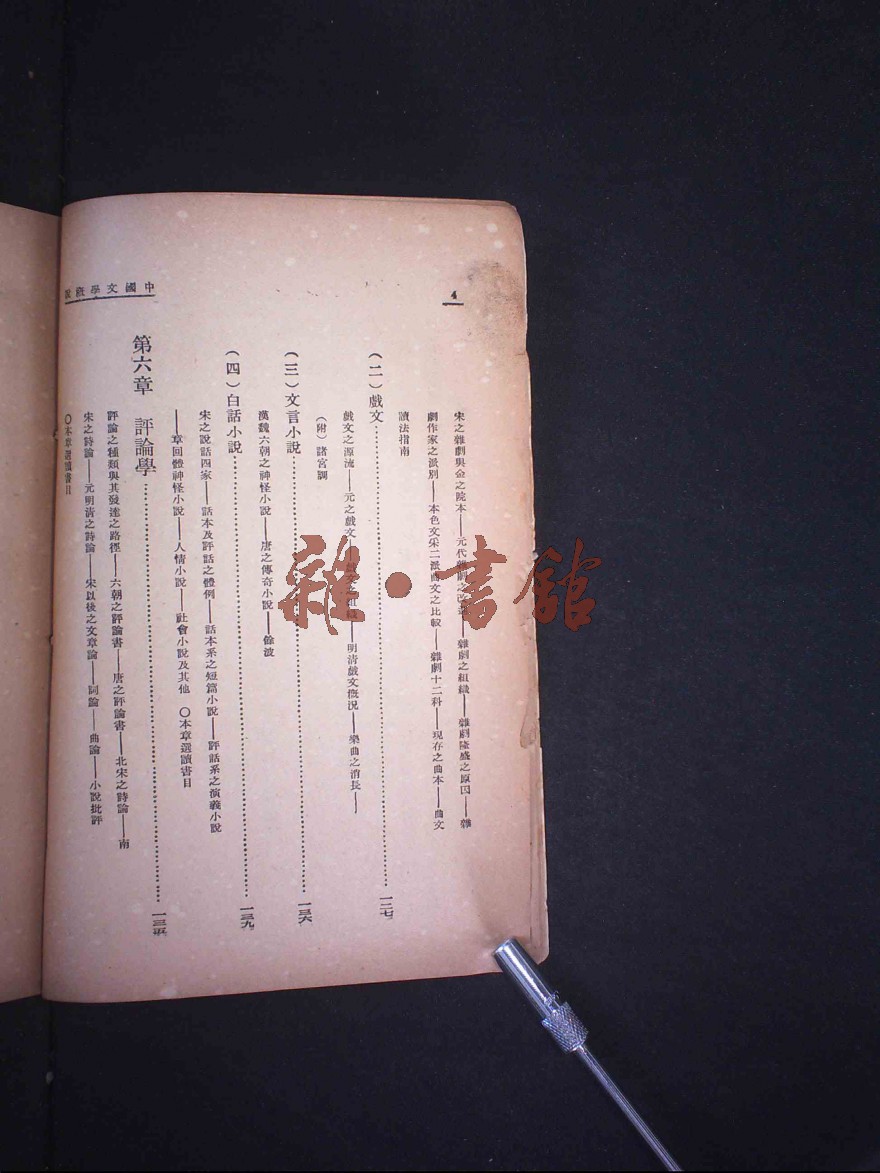 中國文學槪說
4
宋之雜劇與金之院本——元代雜劇之改革——雜劇之組織——雜劇隆盛之原因——雜
劇作家之派別——本色文采二派曲文之比較——雜劇十二科——現存之曲本——曲文
讀法指南
(二)戲文……一二七
戲文之源流——元之戲文——戲文之組織——明清戲文槪況——樂曲之消長——
(附)諸宮調
(三)文言小說……一三六
漢魏六朝之神怪小說——唐之傳奇小說——餘波
(四)白話小說……一三九
宋之說話四家——話本及評話之體例——話本系之短篇小說——評話系之演義小說
——章回體神怪小說——人情小說——社會小說及其他 〇本章選讀書目
第六章 評論學……一五三
評論之種類與其發達之路徑——六朝之評論書——唐之評論書——北宋之詩論——南
宋之詩論——元明清之詩論——宋以後之文章論——詞論——曲論——小說批評
〇本章選讀書目
雜·書館